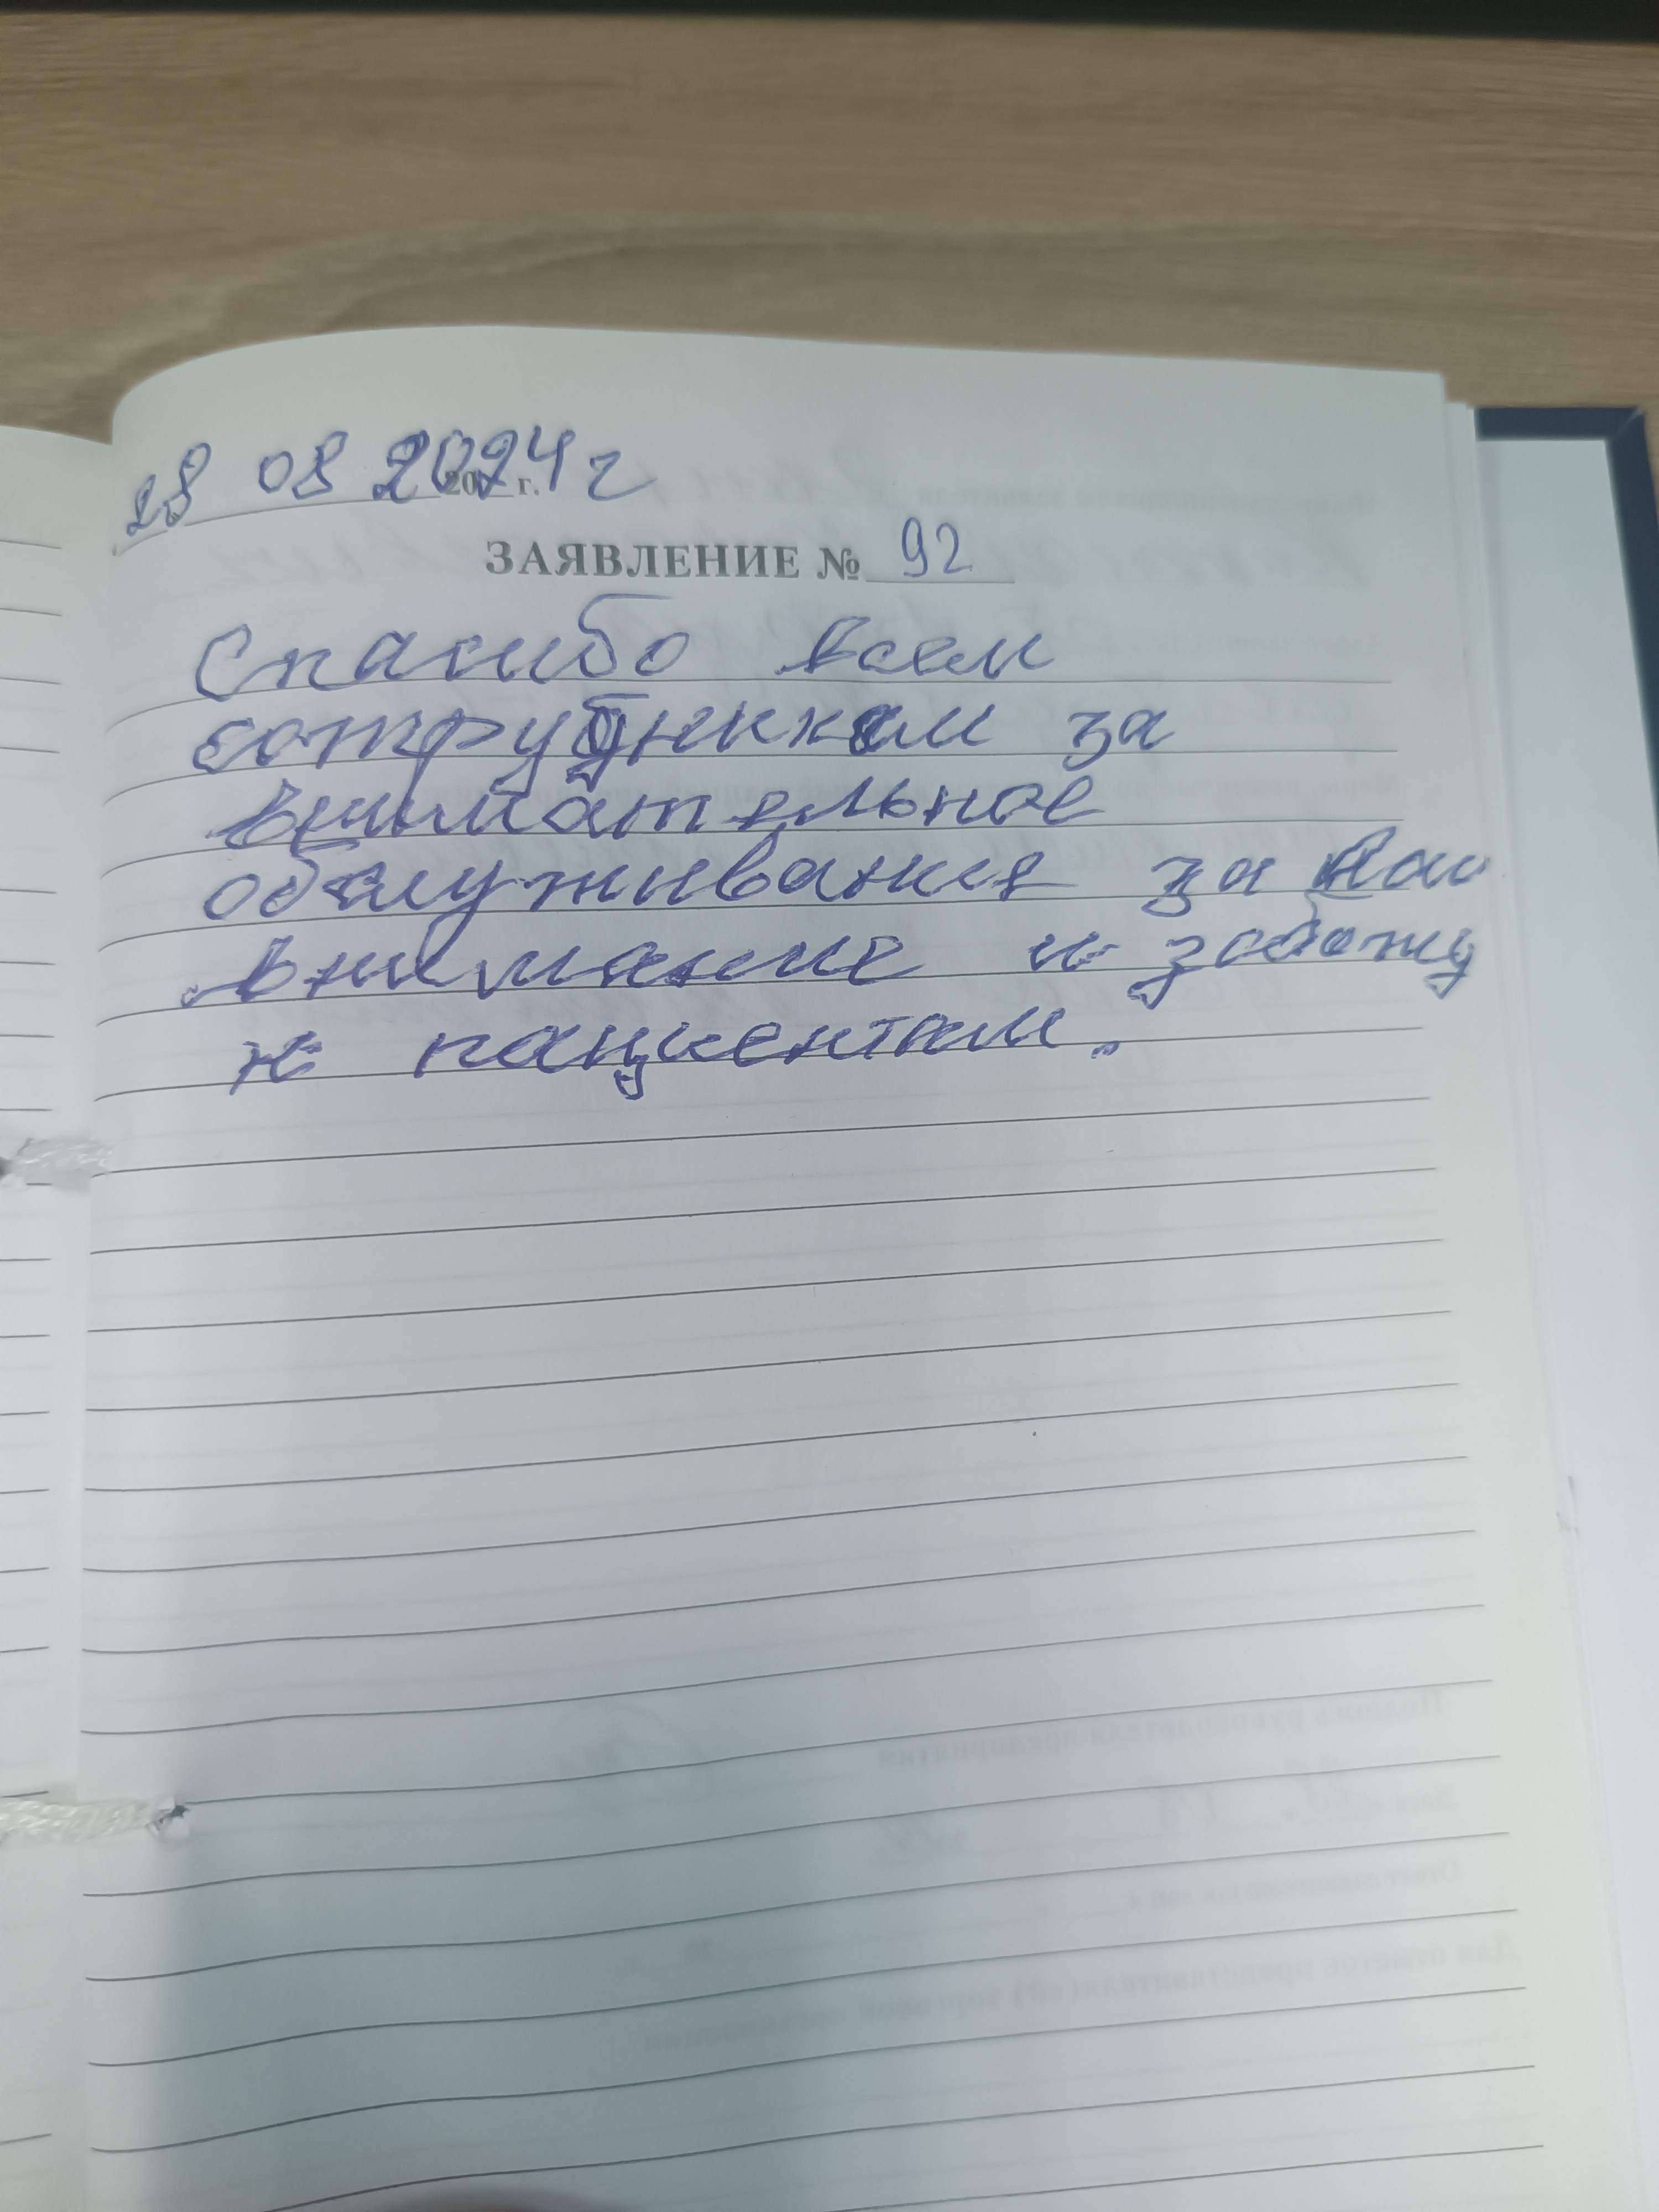 28 08 2024 г
ЗАЯВЛЕНИЕ № 92
Спасибо всем
сотрудникам за
внимательное
обслуживания за ваш
внимание и заботу
к пациентам.